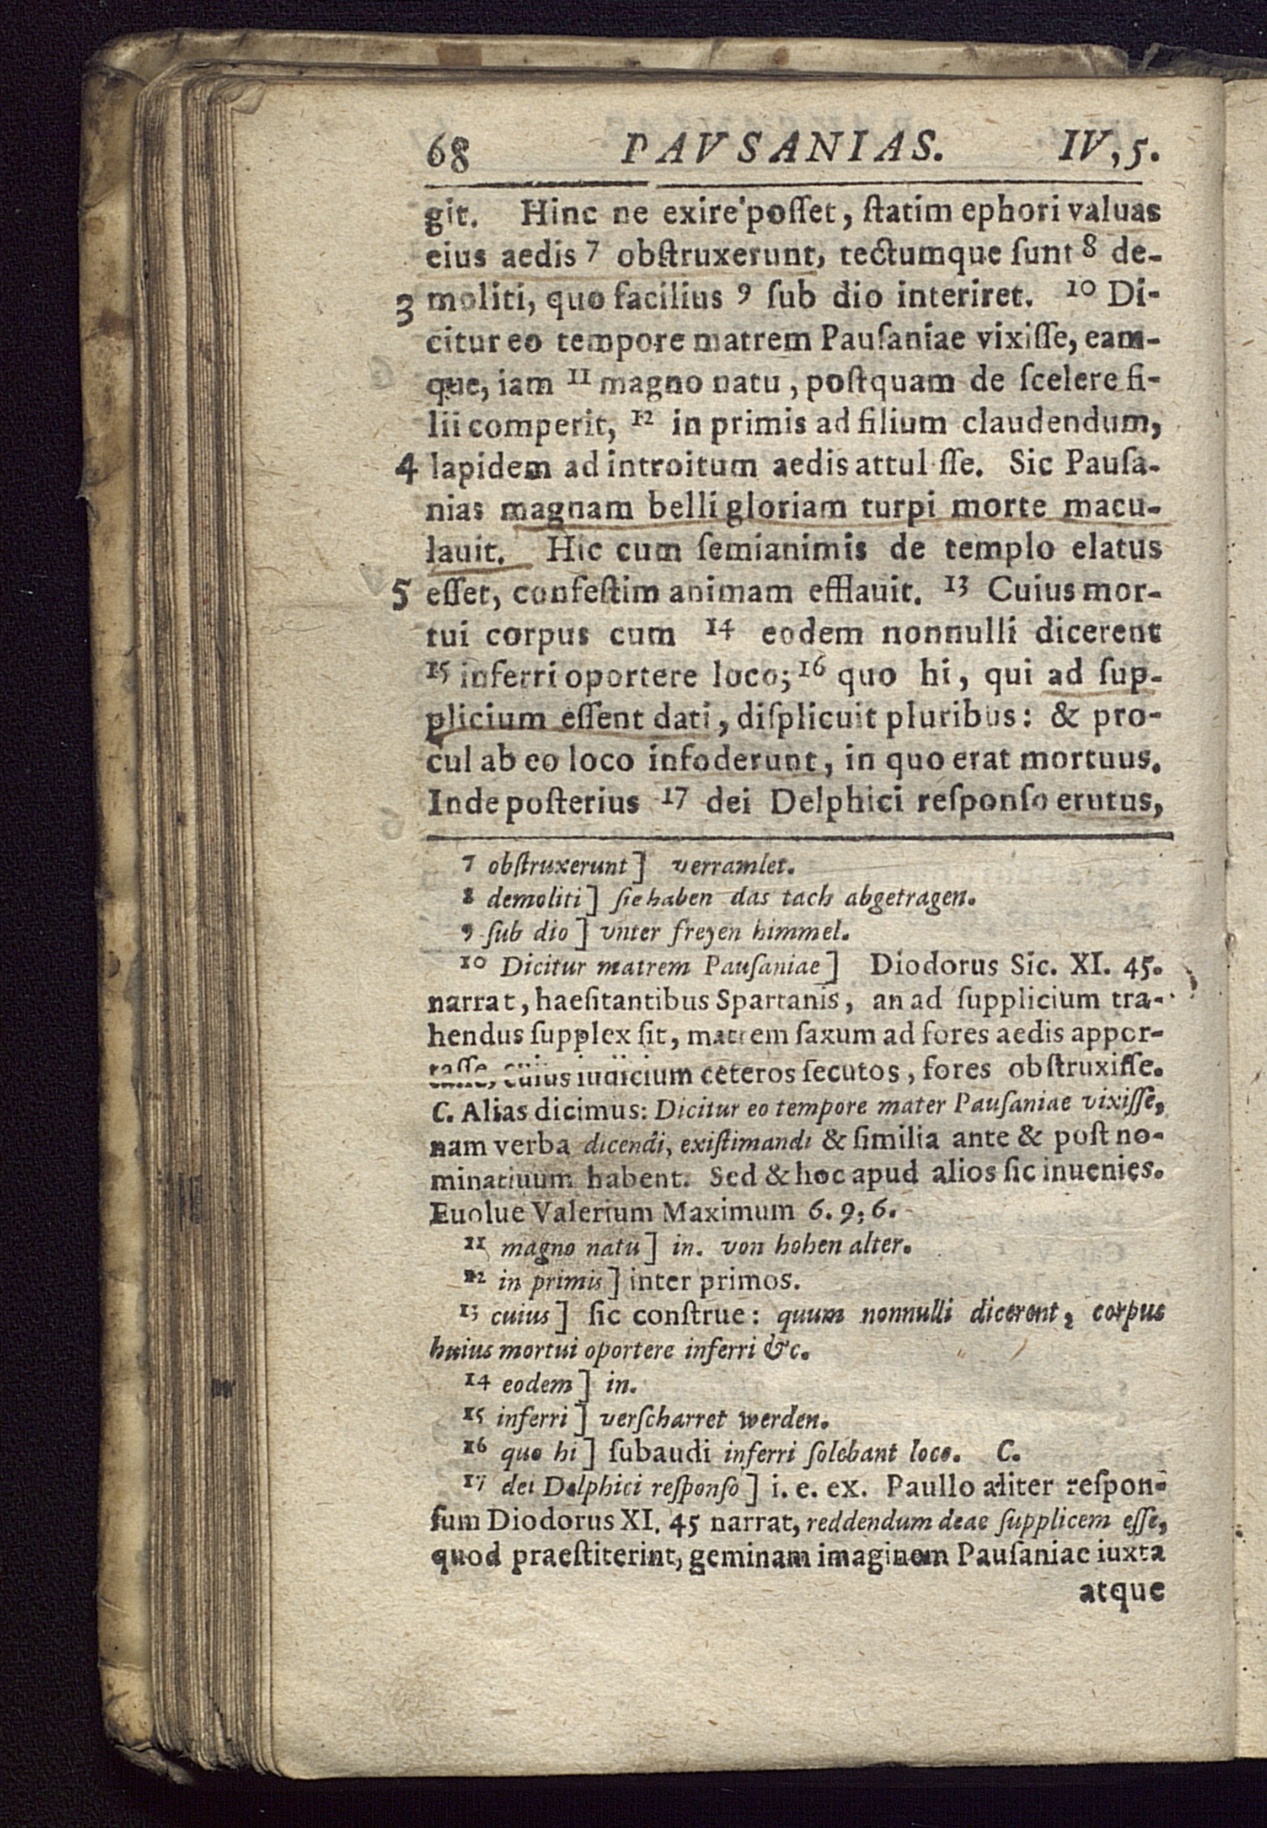 68 PAVSANIAS. IV, 5.
git. Hinc ne exire posſet, ſtatim ephori valuas
eius aedis 7 obſtruxerunt, tectumque ſunt 8 de-
3 moliti, quo facilius 9 ſub dio interiret. 10 Di-
citur eo tempore matrem Pauſaniae vixiſſe, eam-
que, iam 11 magno natu, poſtquam de ſcelere fi-
lii comperit, 12 in primis ad filium claudendum,
4 lapidem ad introitum aedis attul ſſe. Sic Pauſa-
nias magnam belli gloriam turpi morte macu-
lauit. Hic cum ſemianimis de templo elatus
5 eſſet, confeſtim animam efflauit. 13 Cuius mor-
tui corpus cum 14 eodem nonnulli dicerent
15 inferri oportere loco; 16 quo hi, qui ad ſup-
plicium eſſent dati, diſplicuit pluribus: & pro-
cul ab eo loco infoderunt, in quo erat mortuus.
Inde poſterius 17 dei Delphici reſponſo erutus,
7 obſtruxerunt] verramlet.
8 demoliti] ſie haben das tach abgetragen.
9 ſub dio] vnter freyen himmel.
10 Dicitur matrem Pauſaniae] Diodorus Sic. XI. 45.
narrat, haeſitantibus Spartanis, an ad ſupplicium tra-
hendus ſupplex ſit, matrem ſaxum ad fores aedis appor-
taſſe, cuius iudicium ceteros ſecutos, fores obſtruxiſſe.
C. Alias dicimus: Dicitur eo tempore mater Pauſaniae vixiſſe,
nam verba dicendi, exiſtimandi & ſimilia ante & poſt no-
minatiuum habent. Sed & hoc apud alios ſic inuenies.
Euolue Valerium Maximum 6. 9, 6.
11 magno natu] in. von hohen alter.
12 in primis] inter primos.
13 cuius] ſic conſtrue: quum nonnulli dicerent, corpus
huius mortui oportere inferri &c.
14 eodem] in.
15 inferri] verſcharret werden.
16 quo hi] ſubaudi inferri ſolebant loco. C.
17 dei Delphici reſponſo] i. e. ex. Paullo aliter reſpon-
ſum Diodorus XI. 45 narrat, reddendum deae ſupplicem eſſe,
quod praeſtiterint, geminam imaginem Pauſaniae iuxta
atque